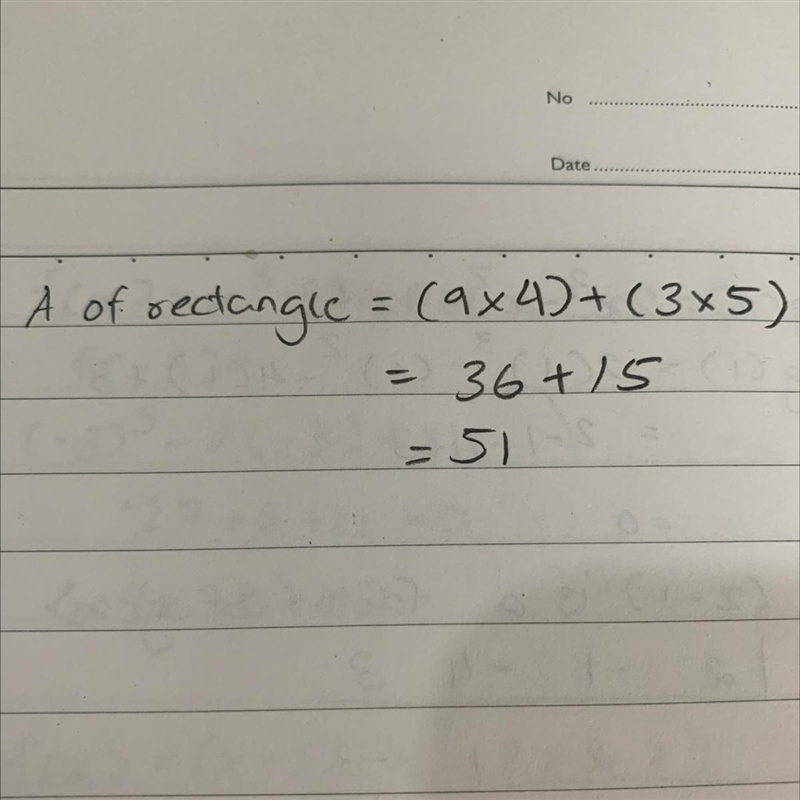 No
Date
A of rectangle = (9x4)+(3x5)
= 36+15
= 51